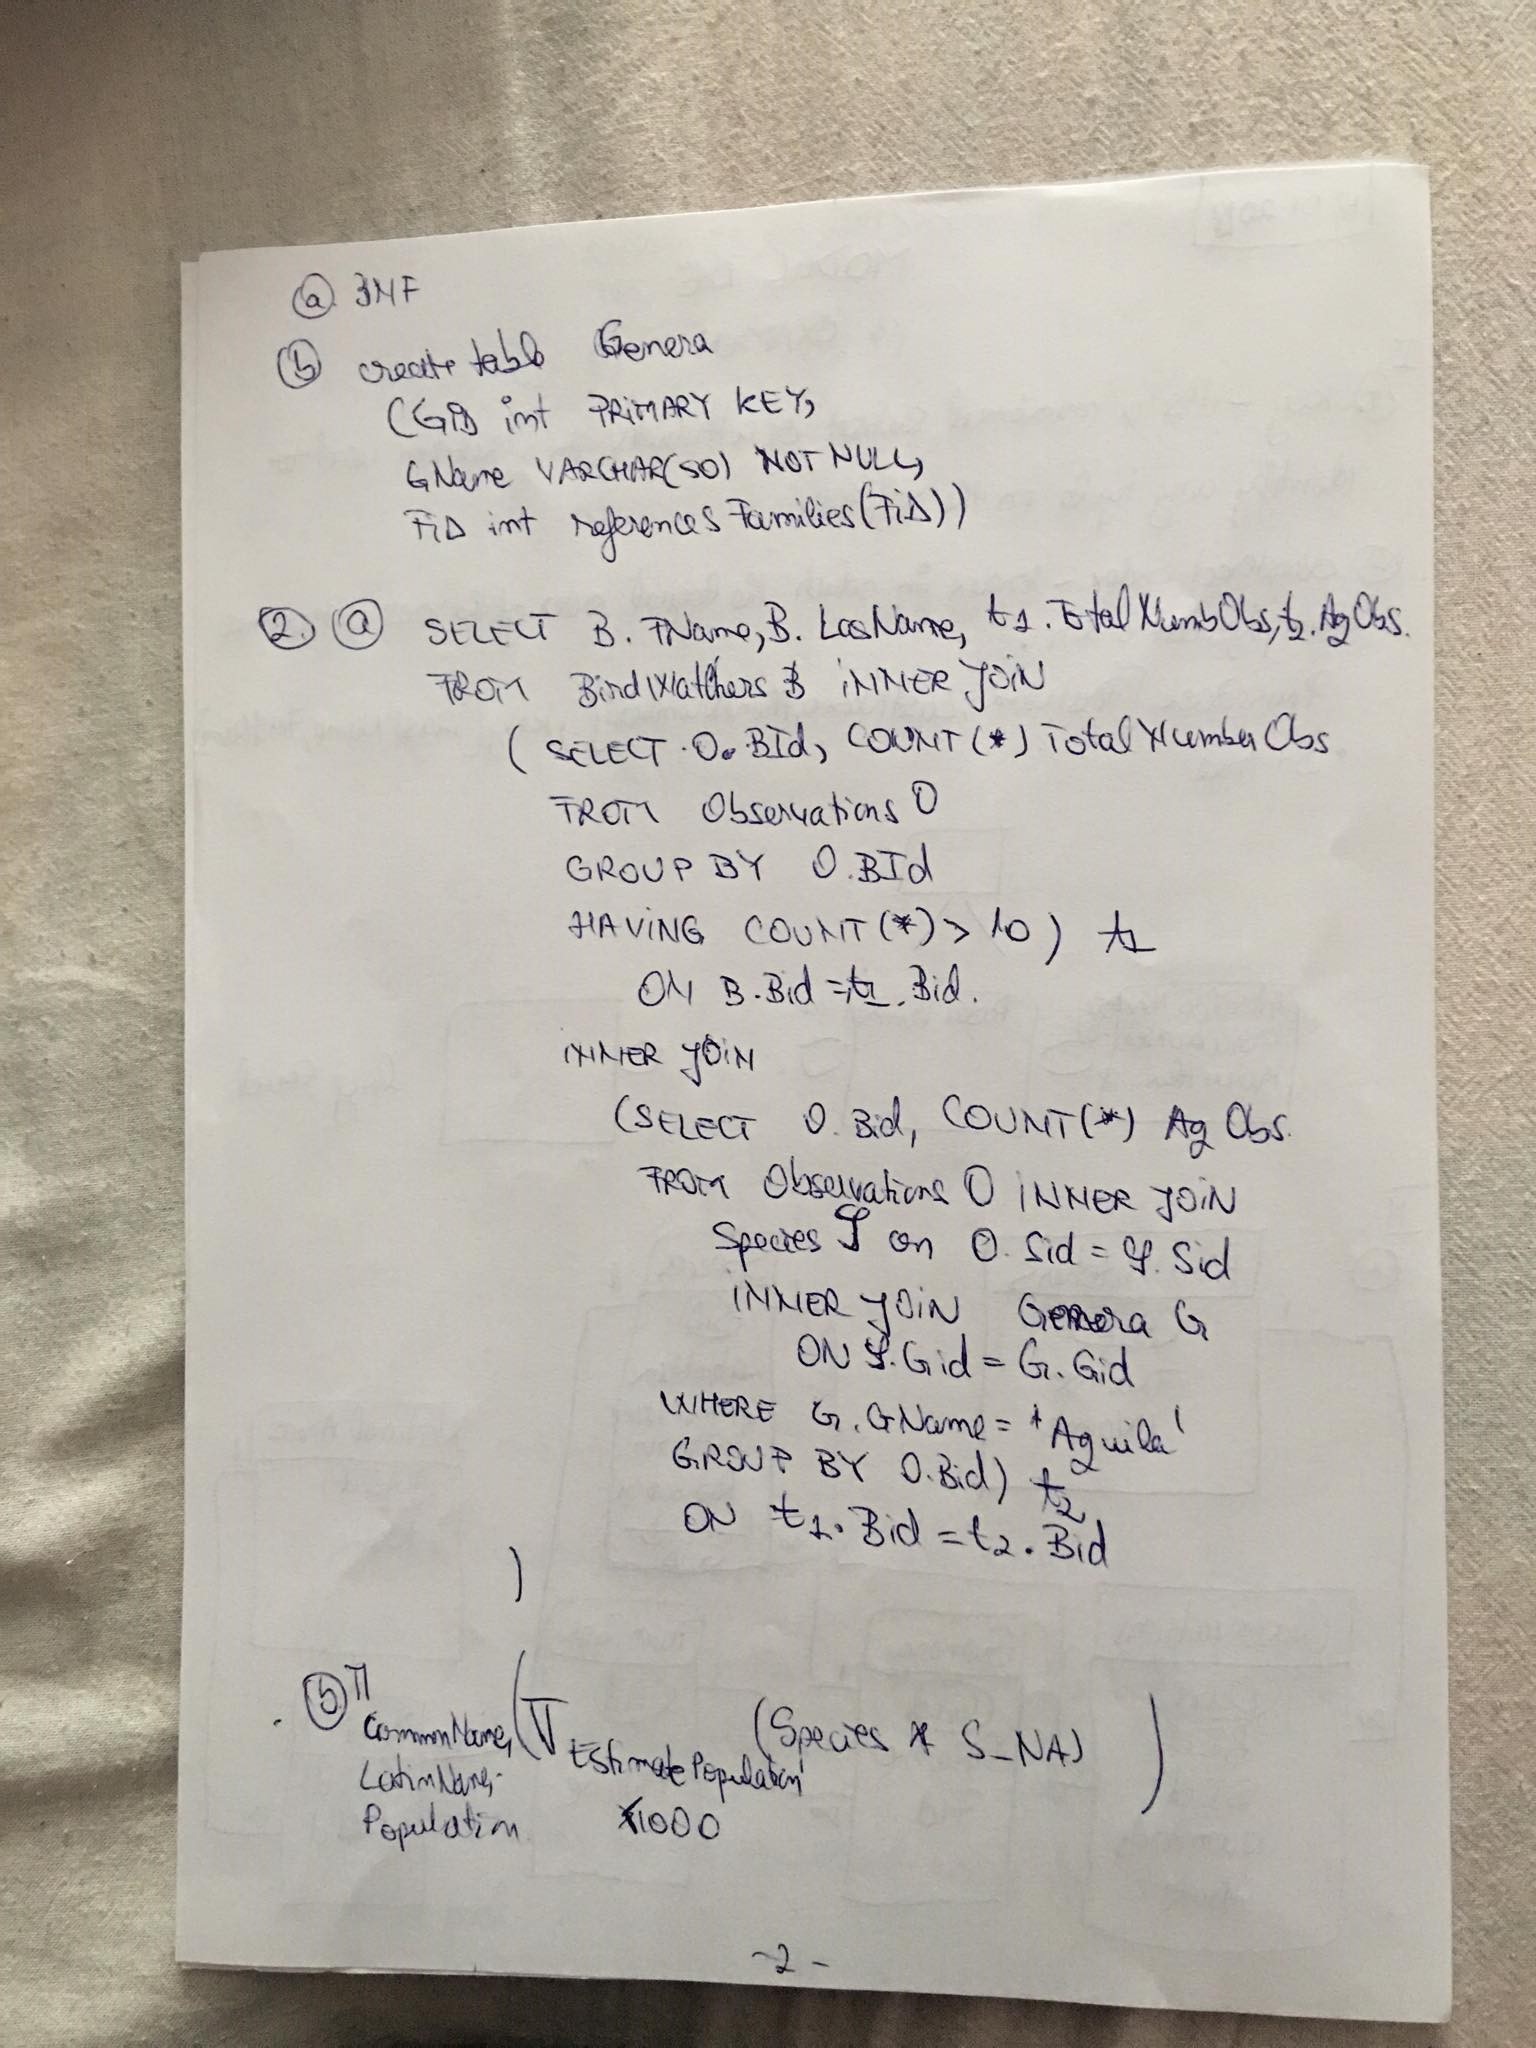 (a) 3NF
(b) create table Genera
(GID int PRIMARY KEY,
GName VARCHAR(50) NOT NULL,
FiD int references Families(FiD))
2. (a) SELECT B. FName, B. LasName, t1. Total NumbObs, t2. Ag Obs.
FROM BirdWatchers B INNER JOIN
( SELECT O. BId, COUNT (*) Total Number Obs
FROM Observations O
GROUP BY O.BId
HAVING COUNT (*) > 10 ) t1
ON B.Bid = t1. Bid.
INNER JOIN
(SELECT O. Bid, COUNT(*) Ag Obs.
FROM Observations O INNER JOIN
Species S on O. Sid = S. Sid
INNER JOIN Genera G
ON S.Gid = G. Gid
WHERE G. GName = 'Aquila'
GROUP BY O.Bid) t2
ON t1. Bid = t2. Bid
)
(b) π CommonName, ( (Species * S_NA) )
LatinName, Estimate Population
Population 1000
-2-